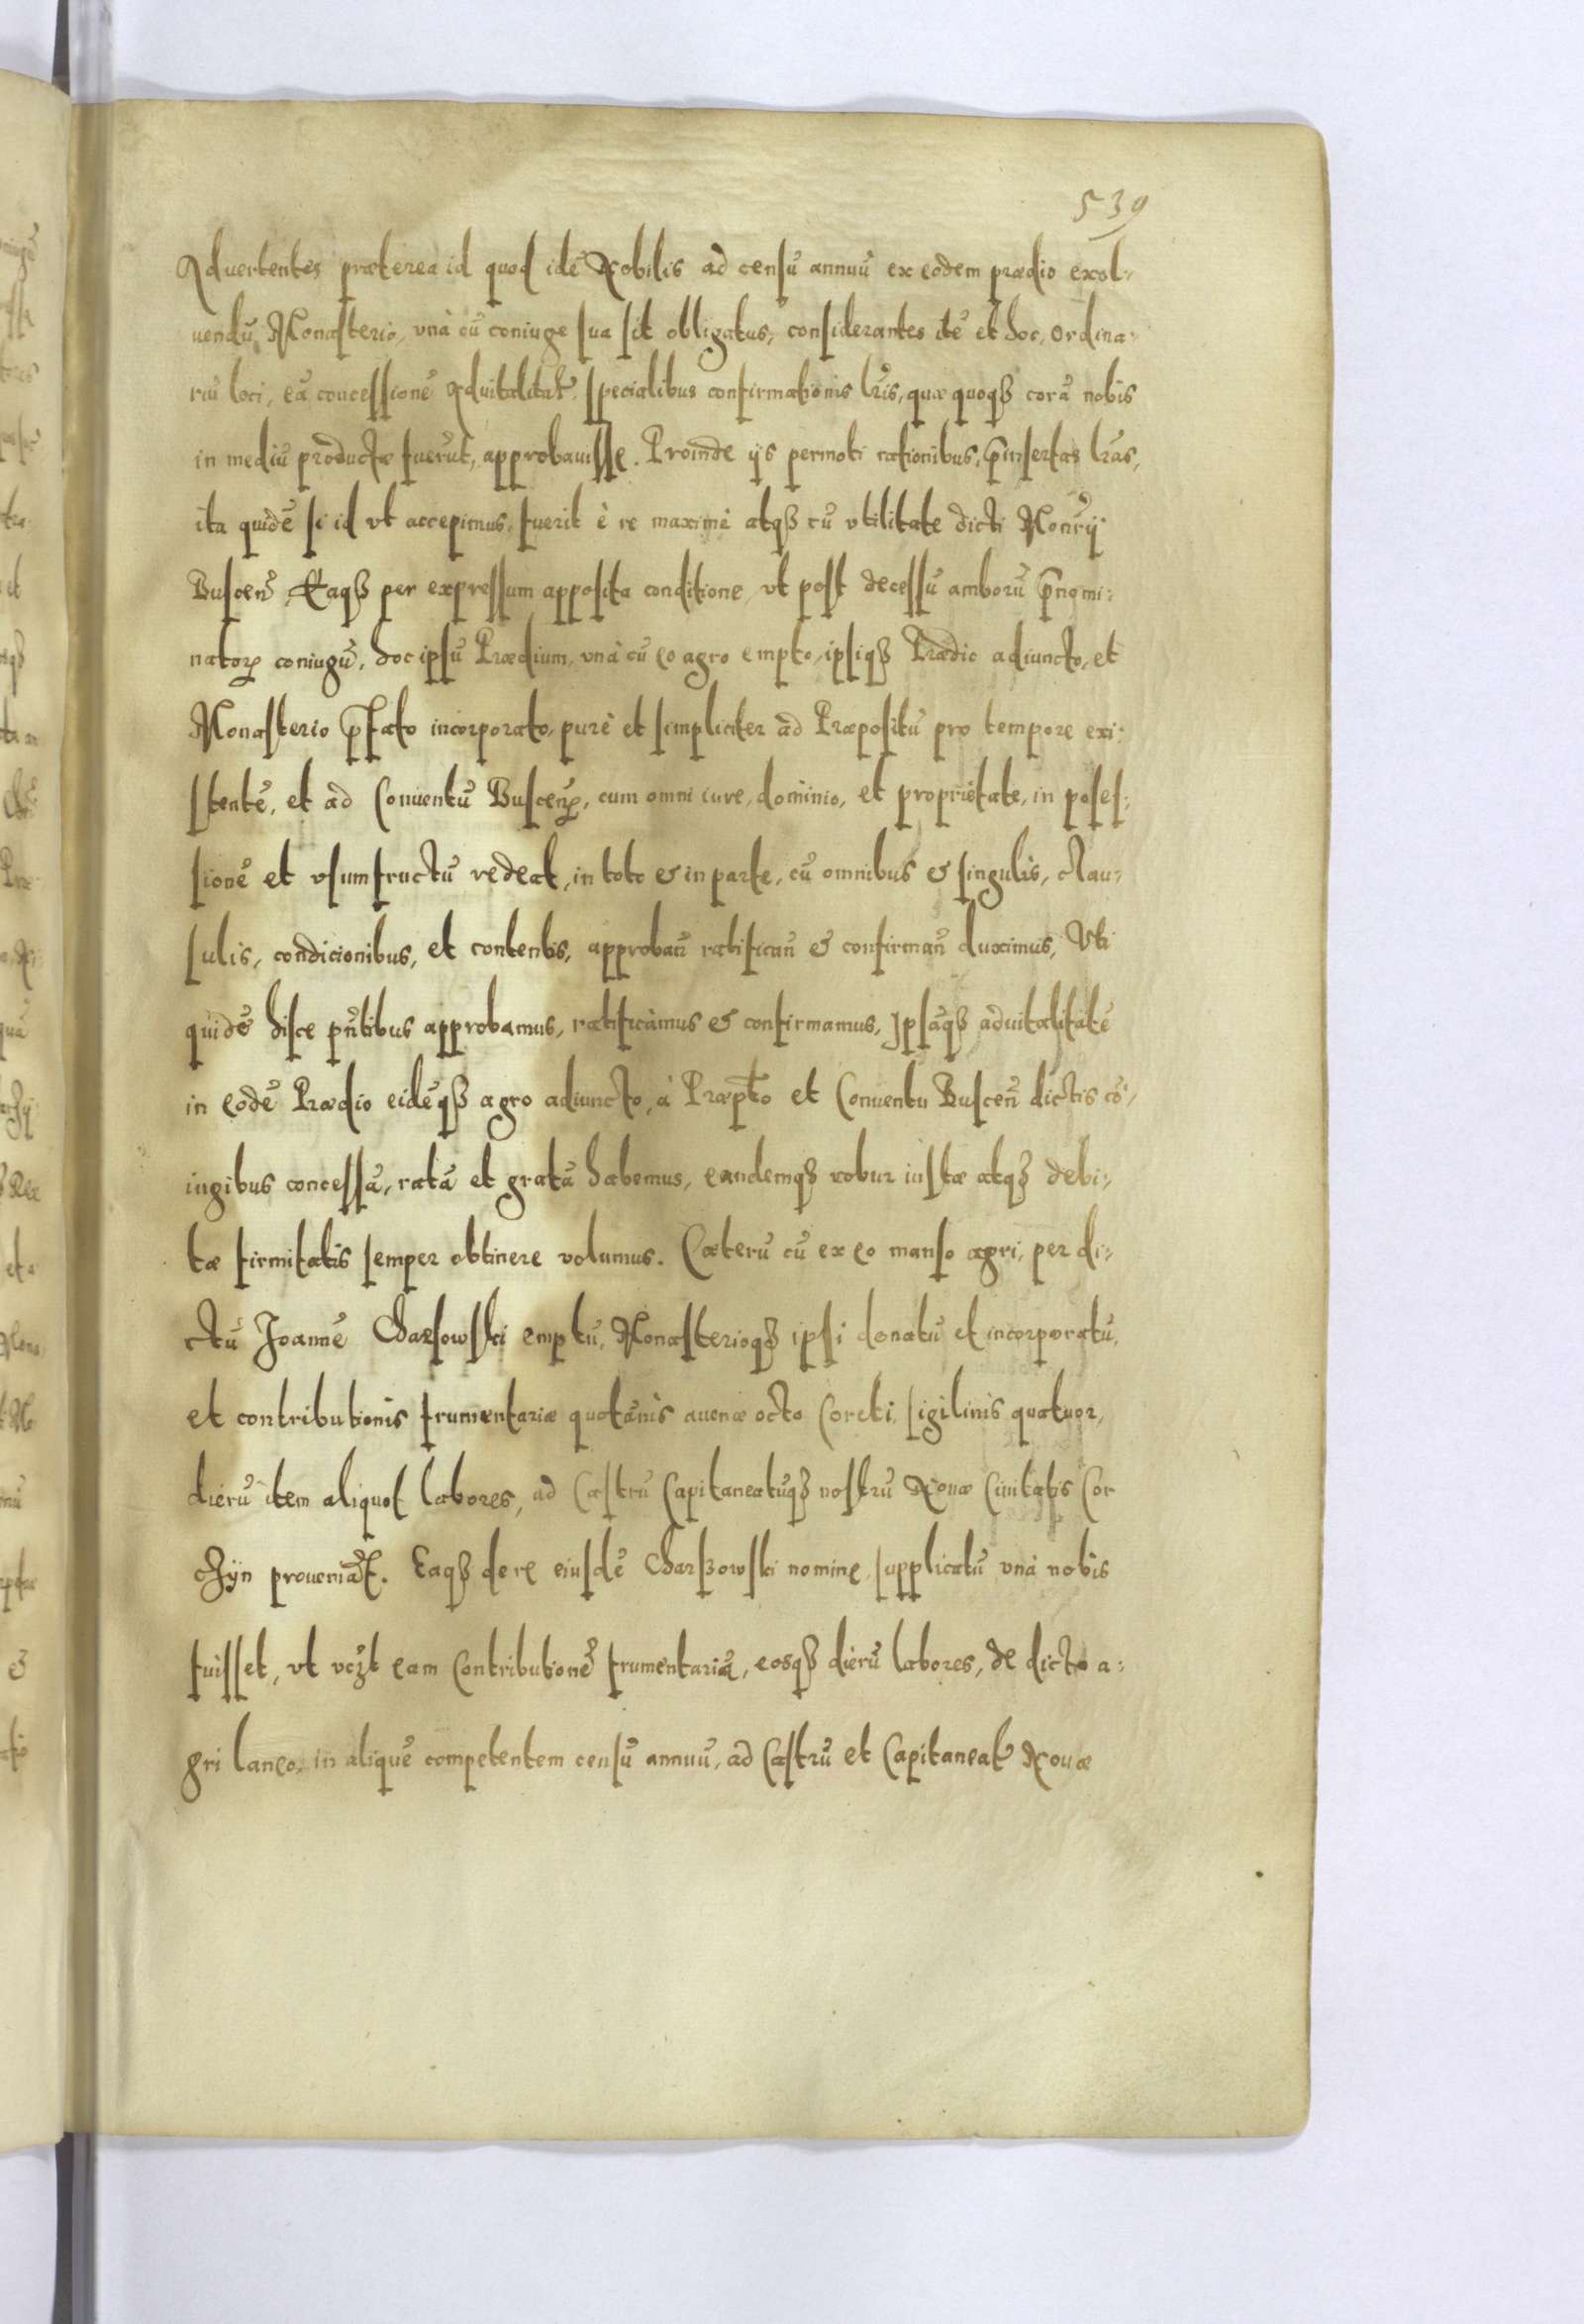 539
Aduertentes præterea id quod idē Nobilis ad censū annuū ex eodem prædio exol-
uendū Monasterio, vnà cū coniuge sua sit obligatus, considerantes itē et hoc, ordina-
riū loci, eā concessionē Aduitalitat̃ specialibus confirmationis lr̃is, quæ quoqȝ corā nobis
in mediū productæ fuerūt, approbauisse. Proinde ijs permoti rationibus, p̄insertas lr̃as,
ita quidē si id vt accepimus, fuerit è re maximè atqȝ cū vtilitate dicti Monr̃ij
Buscen̄ Eaqȝ per expressum apposita conditione, vt post decessū amborū p̄nomi-
natorꝝ coniugū, hoc ipsū Prædium, vnà cū eo agro empto, ipsiqȝ Prædio adiuncto, et
Monasterio p̄fato incorporato, purè et simpliciter ad Præpositū pro tempore exi-
stentē, et ad Conuentū Buscenꝝ, cum omni iure, dominio, et proprietate, in poses-
sionē et vsumfructū redeat, in toto & in parte, cū omnibus & singulis, clau-
sulis, condicionibus, et contentis, approban̄ ratifican̄ & confirman̄ duximus, Vti
quidē hisce pn̄tibus approbamus, ratificamus & confirmamus, Ipsāqȝ aduitalitatē
in eodē Prædio eidēqȝ agro adiuncto, à Præpt̄o et Conuentu Buscen̄ dictis cō-
iugibus concessā, ratā et gratā habemus, eandemqȝ robur iustæ atqȝ debi-
tæ firmitatis semper obtinere volumus. Cæterū cū ex eo manso agri, per di-
ctū Joannē Charsowski emptū, Monasterioqȝ ipsi donatū et incorporatū,
et contributionis frumentariæ quotānis auenæ octo Coreti, siliginis quatuor,
dierū item aliquot labores, ad Castrū Capitaneatūqȝ nostrū Nouæ Ciuitatis Cor
chyn proueniāt. Eaqȝ de re eiusdē Charszowski nomine, supplicatū vnà nobis
fuisset, vt vcȝt eam Contributionē frumentariā, eosqȝ dierū labores, de dicto a-
gri laneo, in aliquē competentem censū annuū, ad Castrū et Capitaneat̃ Nouæ